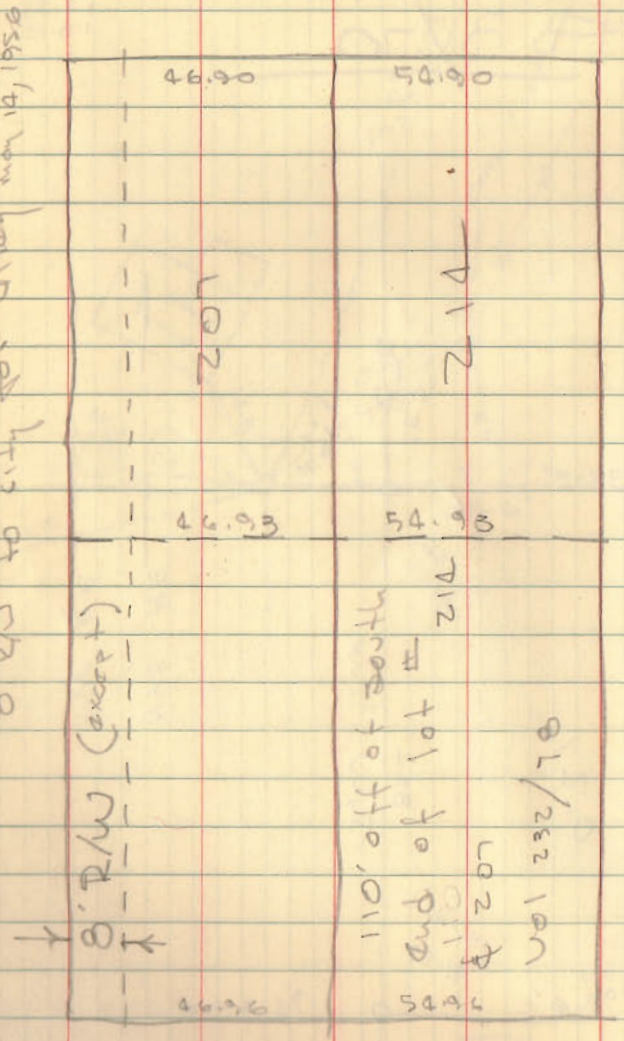 8' R/W to city for alley may 14, 1956
46.90 54.90
207
214
46.93 54.93
8' R/W (except)
110' off of south
end of lot # 214
& 207
Vol 232/78
46.96 54.96